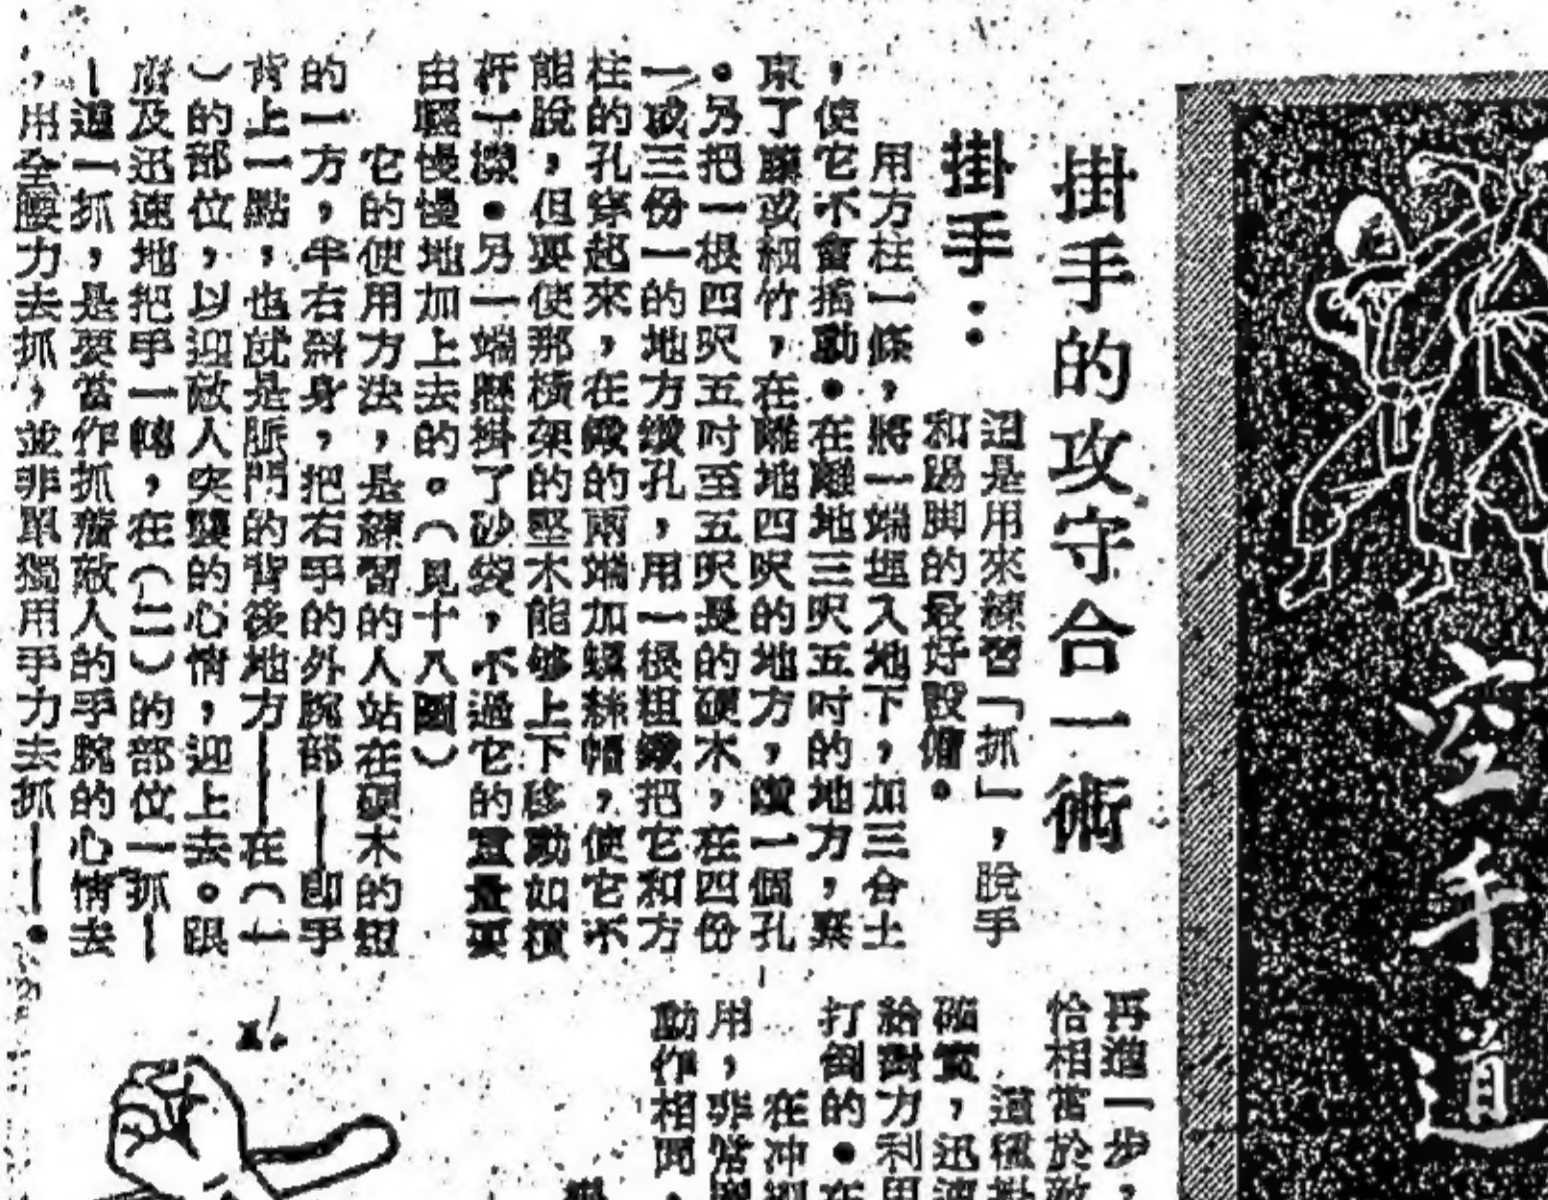 空手道
掛手的攻守合一術
掛手：
這是用來練習「抓」，脫手
和踢脚的最好設備。
用方柱一條，將一端埋入地下，加三合土
，使它不會搖動。在離地三呎五吋的地方，紮
束了藤或細竹，在離地四呎的地方，鑽一個孔
。另把一根四呎五吋至五呎長的硬木，在四份
一或三份一的地方鑽孔，用一根粗鐵把它和方
柱的孔穿起來，在鐵的兩端加螺絲帽，使它不
能脫，但要使那橫架的堅木能够上下移動如橫
杆一樣。另一端懸掛了砂袋，不過它的重量要
由輕慢慢地加上去的。（見十八圖）
它的使用方法，是練習的人站在硬木的
的一方，半右斜身，把右手的外腕部——即手
背上一點，也就是脈門的背後地方——在（一
）的部位，以迎敵人突襲的心情，迎上去。跟
及迅速地把手一轉，在（二）的部位一抓—
—這一抓，是要當作抓着敵人的手腕的心情去
，用全腰力去抓，並非單獨用手力去抓——。
再進一步，
恰相當於敵
這種
確實，迅速
給對方利用
打倒的。在
在冲
用，非常
動作相同，